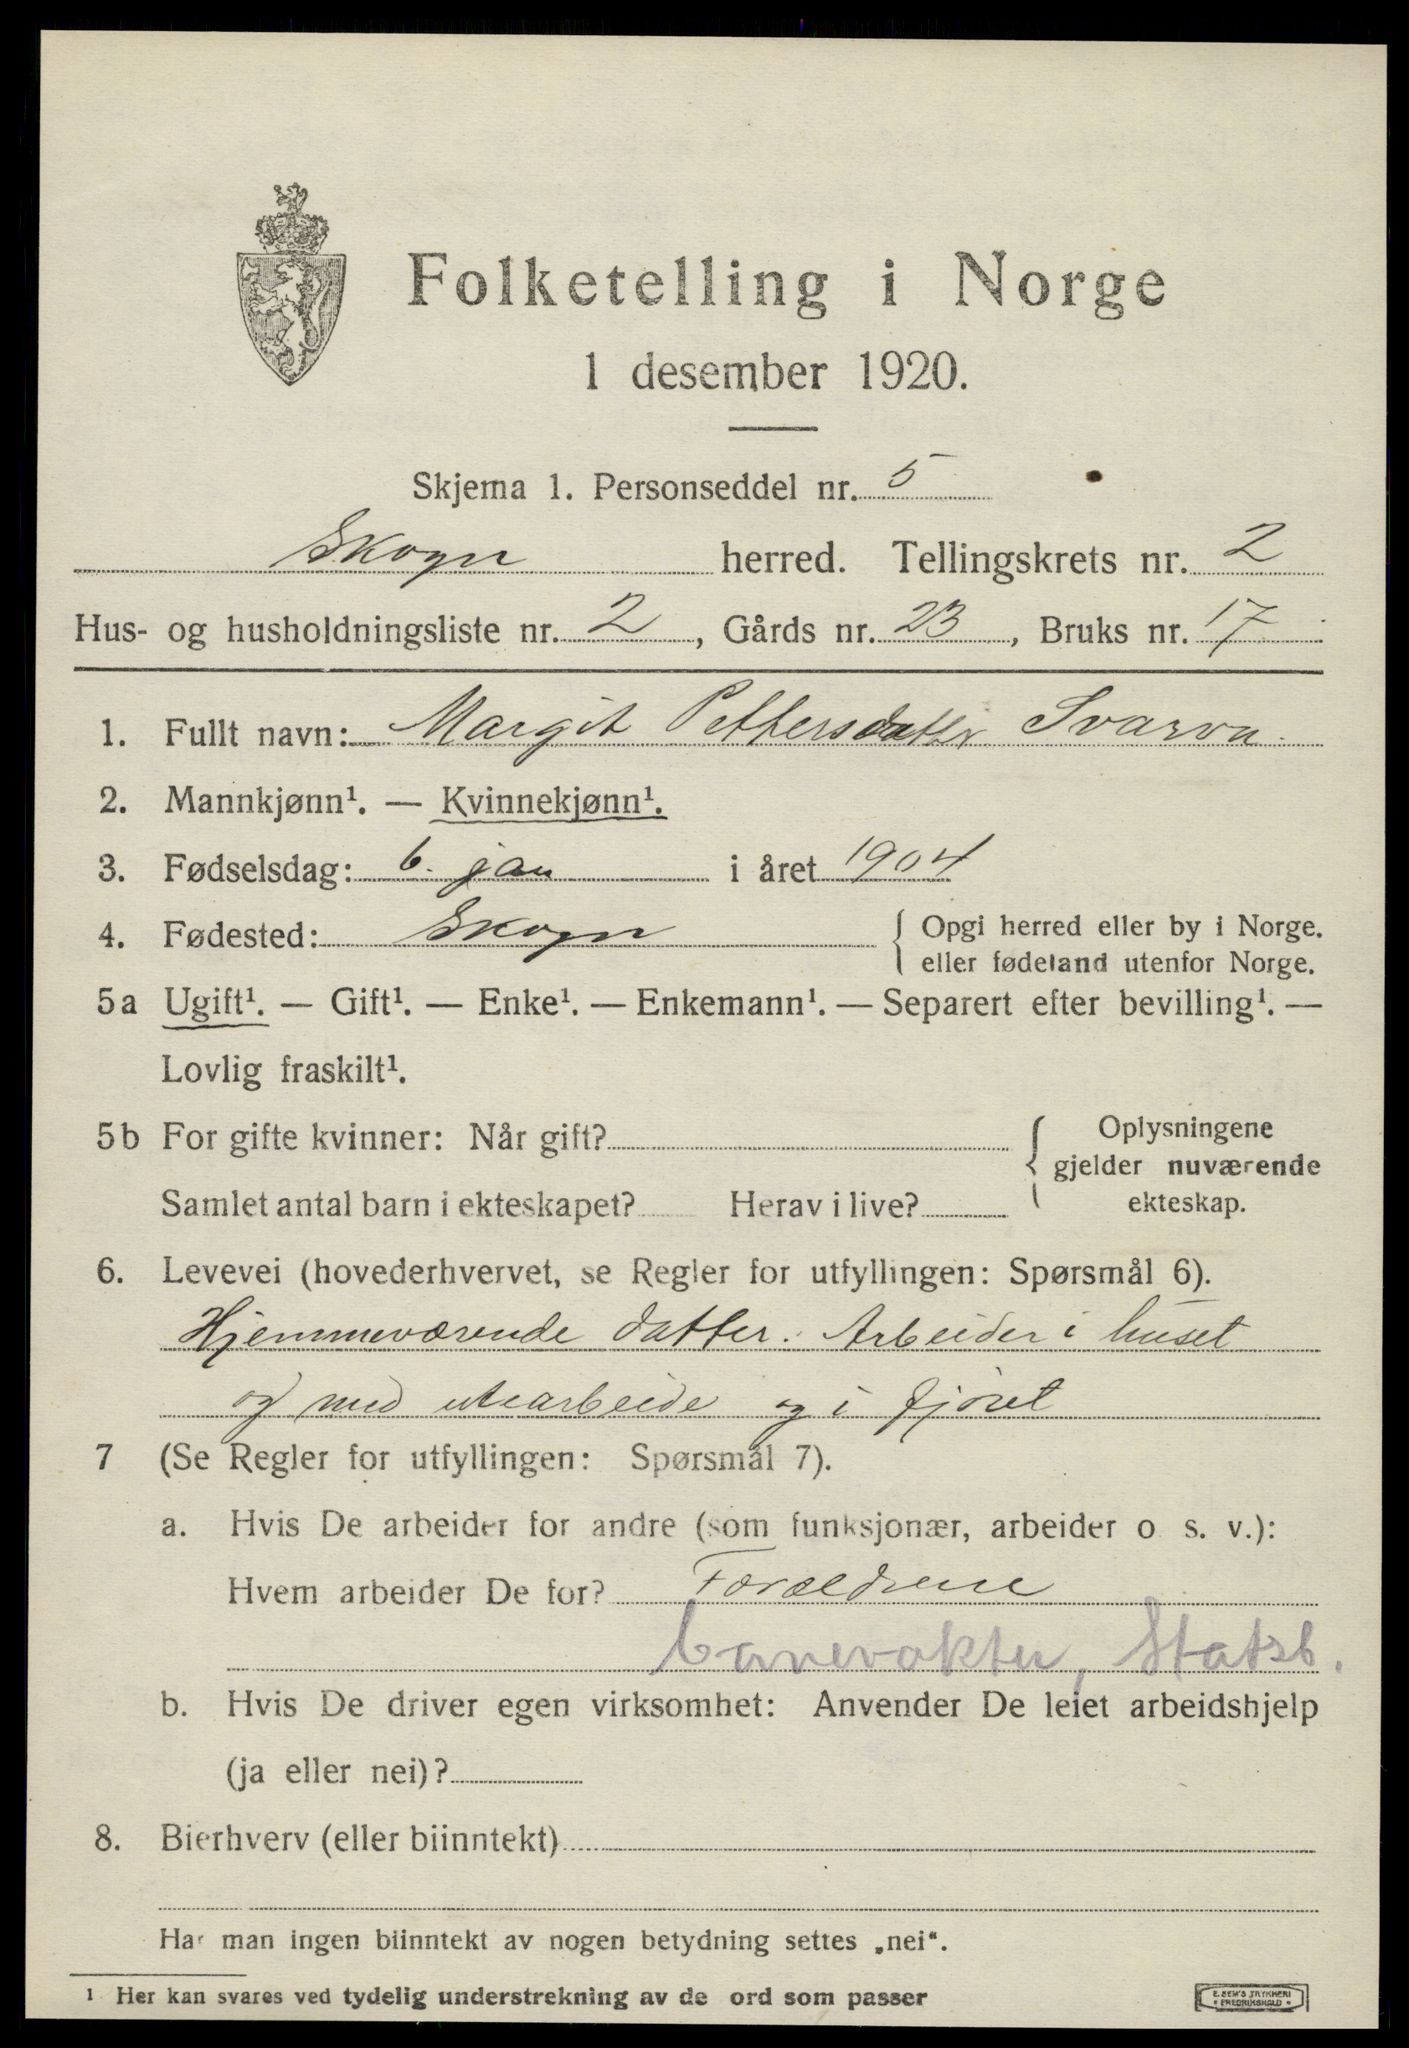 Folketelling i Norge
1 desember 1920.
Skjema 1. Personseddel nr. 5
Skogn herred. Tellingskrets nr. 2
Hus- og husholdningsliste nr. 2, Gårds nr. 23, Bruks nr. 17
1. Fullt navn: Margit Pettersdatter Svarva
2. Mannkjønn¹. — Kvinnekjønn¹.
3. Fødselsdag: 6. jan i året 1904
4. Fødested: Skogn { Opgi herred eller by i Norge.
eller fødeland utenfor Norge.
5a Ugift¹. — Gift¹. — Enke¹. — Enkemann¹. — Separert efter bevilling¹. —
Lovlig fraskilt¹.
5b For gifte kvinner: Når gift? { Oplysningene
gjelder nuværende
Samlet antal barn i ekteskapet? Herav i live? ekteskap.
6. Levevei (hovederhvervet, se Regler for utfyllingen: Spørsmål 6).
Hjemmeværende datter. Arbeider i huset
og med utearbeide og i fjøset
7 (Se Regler for utfyllingen: Spørsmål 7).
a. Hvis De arbeider for andre (som funksjonær, arbeider o s. v.):
Hvem arbeider De for? Forældrene
banevokter, Statsb.
b. Hvis De driver egen virksomhet: Anvender De leiet arbeidshjelp
(ja eller nei)?
8. Bierhverv (eller biinntekt)
Har man ingen biinntekt av nogen betydning settes „nei“.
¹ Her kan svares ved tydelig understrekning av de ord som passer
E. SEM'S TRYKKERI
• FREDRIKSHALD •